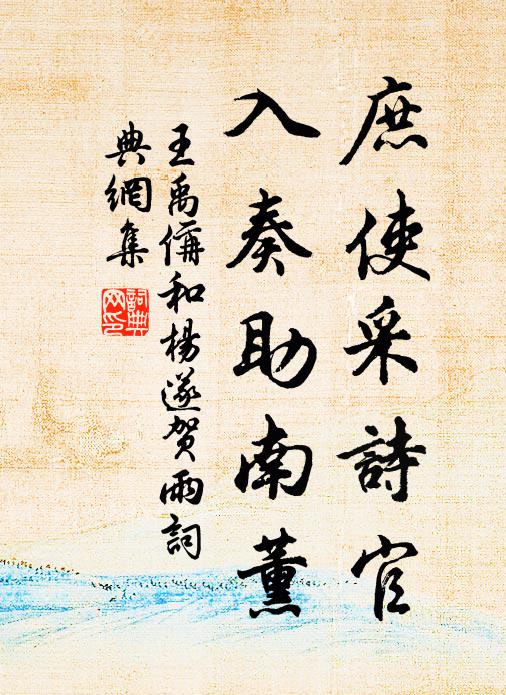 庶使采詩官
入奏助南薰
王禹偁和楊遂賀雨詞
典網集
詞典網印